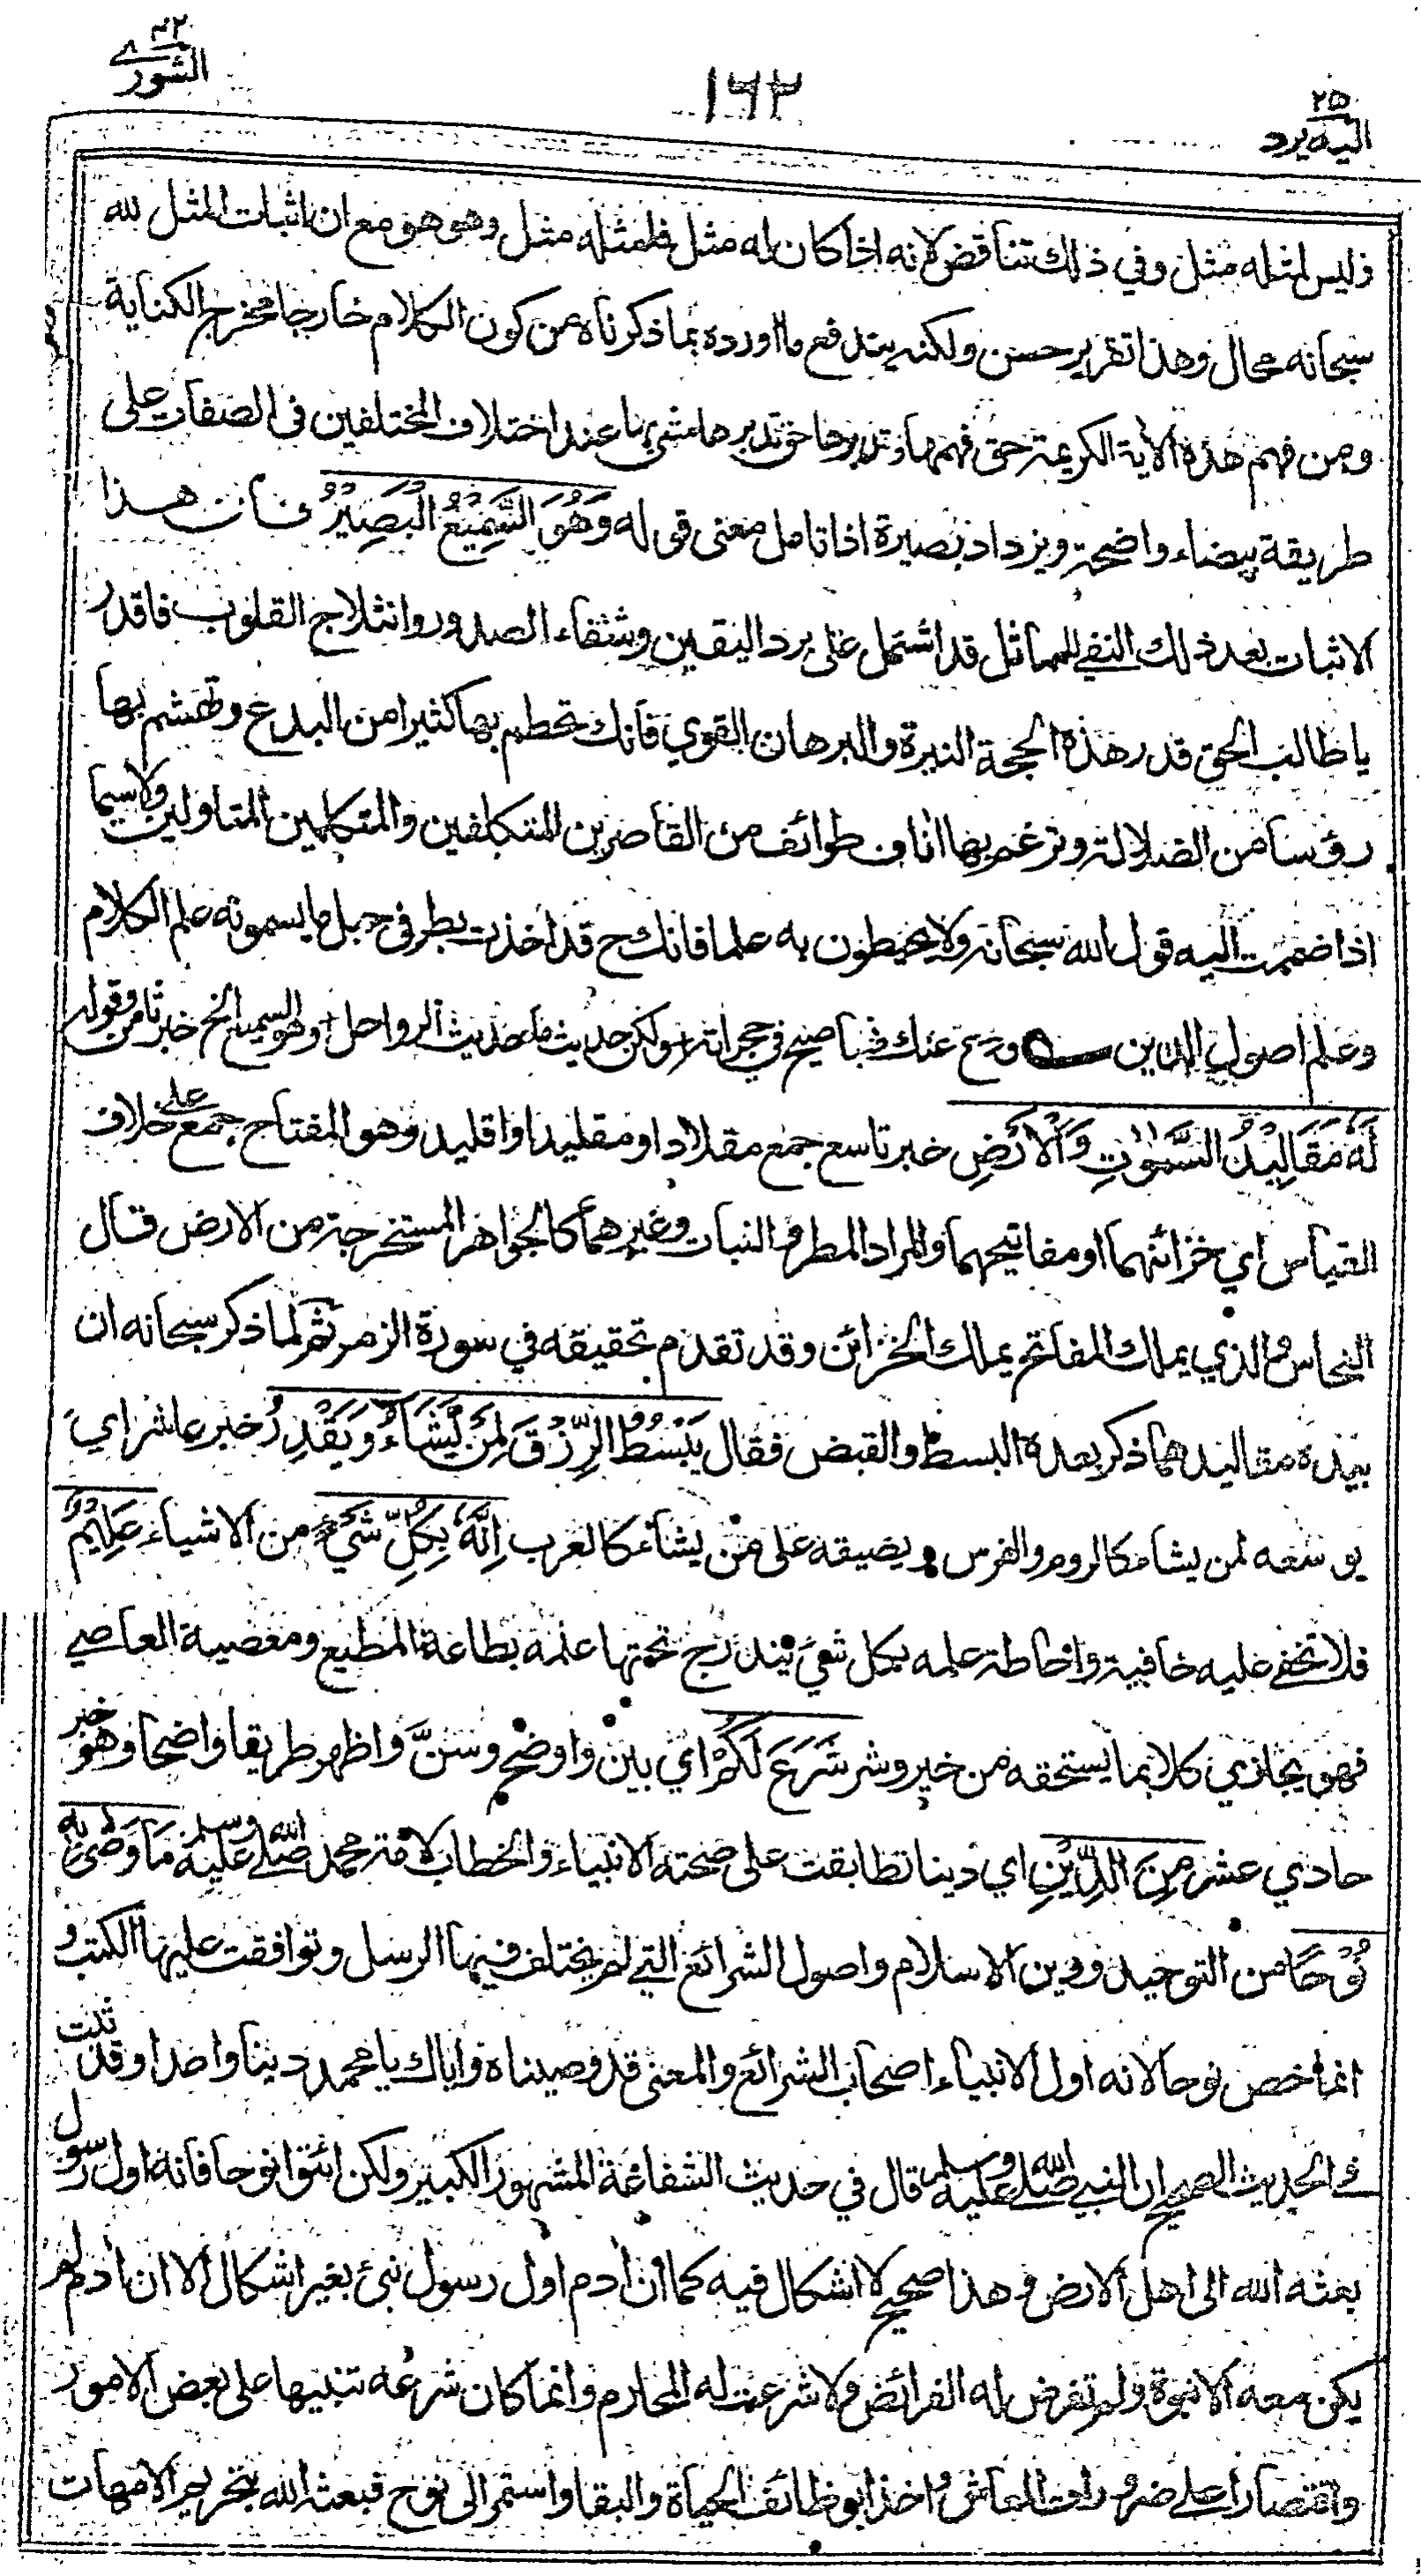 ٤٢
الشورى
١٦٢
٢٥
اليه يرد
وليس لمثله مثل وفي ذلك تناقض لانه اذا كان له مثل فلمثله مثل وهو هو مع ان اثبات المثل لله
سبحانه محال وهذا تقرير حسن ولكنه يندفع ما اورده بما ذكرناه من كون الكلام خارجا مخرج الكناية
ومن فهم هذه الاية الكريمة حق فهمها وتدبرها حق تدبرها مشى بها عند اختلاف المختلفين في الصفات على
طريقة بيضاء واضحة ويزداد بصيرة اذا تامل معنى قوله وَهُوَ السَّمِيْعُ الْبَصِيْرُ فان هذا
الاثبات بعد ذلك النفي للمماثل قد اشتمل على برد اليقين وشفاء الصدور وانثلاج القلوب فاقدر
يا طالب الحق قدر هذه الحجة النيرة والبرهان القوي فانك تحطم بها كثيرا من البدع وتهشم بها
رؤسا من الضلالة وترغم بها اناف طوائف من القاصرين المتكلفين والمتكلمين المتاولين ولا سيما
اذا ضممت اليه قول الله سبحانه ولا يحيطون به علما فانك ح قد اخذت بطرفي حبل ما يسمونه علم الكلام
وعلم اصول الدين ودع عنك نهبا صيح في حجراته ولكن حديث ما حديث الرواحل وهو السميع الخ خبر ثامن وقوله
لَهُ مَقَالِيْدُ السَّمٰوٰتِ وَالْاَرْضِ خبر تاسع جمع مقلاد او مقليد او اقليد وهو المفتاح جمع على خلاف
القياس اي خزائنهما او مفاتيحهما والمراد المطر والنبات وغيرهما كالجواهر المستخرجة من الارض قال
النحاس والذي يملك المفاتح يملك الخزائن وقد تقدم تحقيقه في سورة الزمر ثم لما ذكر سبحانه ان
بيده مقاليدهما ذكر بعده البسط والقبض فقال يَبْسُطُ الرِّزْقَ لِمَنْ يَّشَاءُ وَيَقْدِرُ خبر عاشر اي
يوسعه لمن يشاء كالروم والفرس ويضيقه على من يشاء كالعرب اِنَّهٗ بِكُلِّ شَيْءٍ من الاشياء عَلِيْمٌ
فلا تخفى عليه خافية واحاطة علمه بكل شيء يندرج تحتها علمه بطاعة المطيع ومعصية العاصي
فهو يجازي كلا بما يستحقه من خير وشر شَرَعَ لَكُمْ اي بين واوضح وسنَّ واظهر طريقا واضحا وهو خبر
حادي عشر مِنَ الدِّيْنِ اي دينا تطابقت على صحته الانبياء والخطاب لامة محمد صلى الله عليه وسلم مَا وَصّٰى بِهٖ
نُوْحًا من التوحيد ودين الاسلام واصول الشرائع التي لم يختلف فيها الرسل وتوافقت عليها الكتب و
انما خص نوحا لانه اول الانبياء اصحاب الشرائع والمعنى قد وصيناه واياك يا محمد دينا واحدا وقد ثبت
في الحديث الصحيح ان النبي صلى الله عليه وسلم قال في حديث الشفاعة المشهور الكبير ولكن ائتوا نوحا فانه اول رسول
بعثه الله الى اهل الارض وهذا صحيح لا اشكال فيه كما ان ادم اول رسول نبئ بغير اشكال الا ان ادم لم
يكن معه الا نبوة ولم تفرض له الفرائض ولا شرعت له المحارم وانما كان شرعه تنبيها على بعض الامور
واقتصارا على ضرورات المعاش واخذا بوظائف الحياة والبقا واستمر الى نوح فبعثه الله بتحريم الامهات